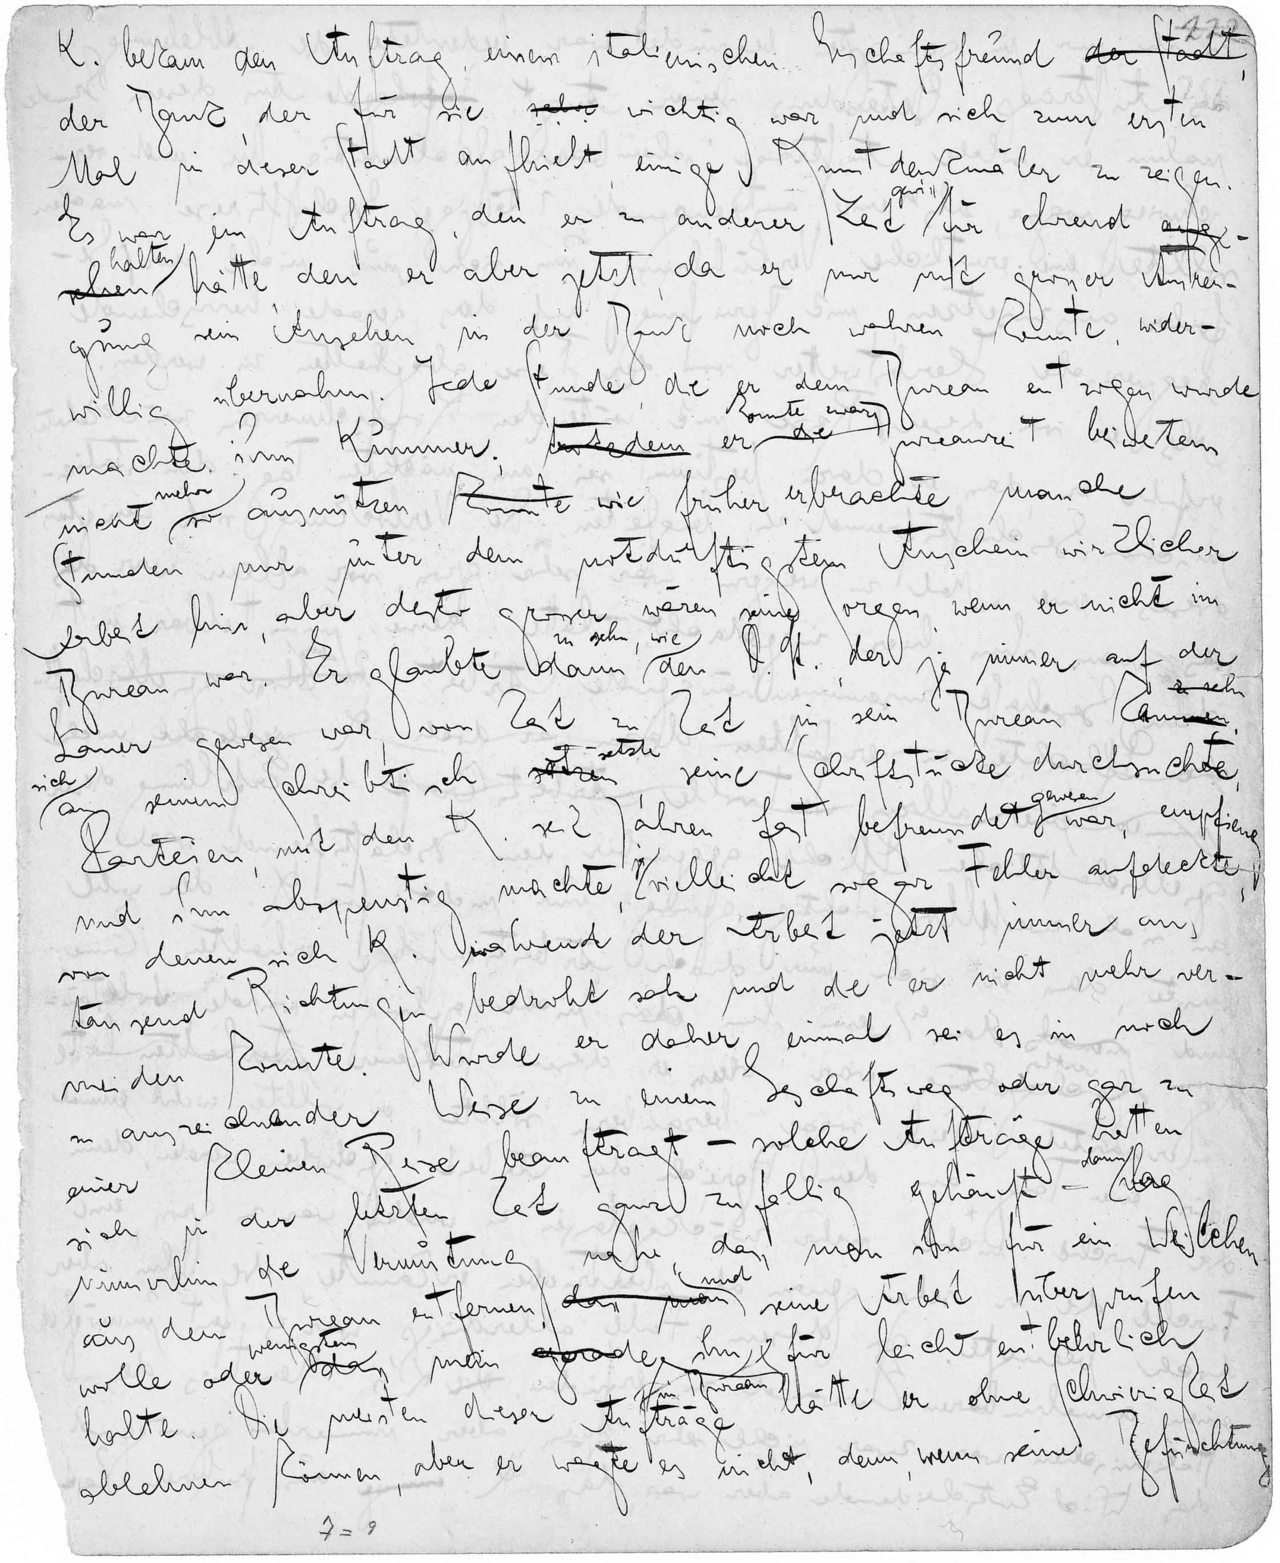 232
K. bekam den Auftrag, einem italienischen Geschäftsfreund der Stadt,
der Bank, der für sie sehr wichtig war und sich zum ersten
Mal in dieser Stadt aufhielt, einige Kunstdenkmäler zu zeigen.
gewiß
Es war ein Auftrag, den er zu anderer Zeit für ehrend ange-
halten
sehen hätte, den er aber jetzt, da er nur mit grosser Anstren-
gung sein Ansehen in der Bank noch wahren konnte, wider-
willig übernahm. Jede Stunde, die er dem Bureau entzogen wurde
konnte zwar
machte ihm Kummer; trotzdem er die Bureauzeit beiweitem
mehr
nicht so ausnützen konnte wie früher, er brachte manche
Stunden nur unter dem notdürftigsten Anschein wirklicher
Arbeit hin, aber desto grösser waren seine Sorgen, wenn er nicht im
zu sehn, wie
Bureau war. Er glaubte dann den D. St., der ja immer auf der
zu sehn
Lauer gewesen war, von Zeit zu Zeit in sein Bureau kommen,
sich setzte
an seinem Schreibtisch setzen seine Schriftstücke durchsuchte,
gewesen
Parteien, mit den K. seit Jahren fast befreundet war, empfieng
und ihm abspenstig machte, ja vielleicht sogar Fehler aufdeckte,
von denen sich K. während der Arbeit jetzt immer aus
tausend Richtungen bedroht sah und die er nicht mehr ver-
meiden konnte. Wurde er daher einmal sei es in noch
so auszeichnender Weise zu einem Geschäftsweg oder gar zu
einer kleinen Reise beauftragt – solche Aufträge hatten
dann
sich in der letzten Zeit ganz zufällig gehäuft – lag
immerhin die Vermutung nahe, daß man ihn für ein Weilchen
und
aus dem Bureau entfernen, daß man seine Arbeit überprüfen
wenigstens
wolle oder daß man gerade ihn für leicht entbehrlich
im Bureau
halte. Die meisten dieser Aufträge hätte er ohne Schwierigkeit
ablehnen können, aber er wagte es nicht, denn, wenn seine Befürchtung
7 = 9